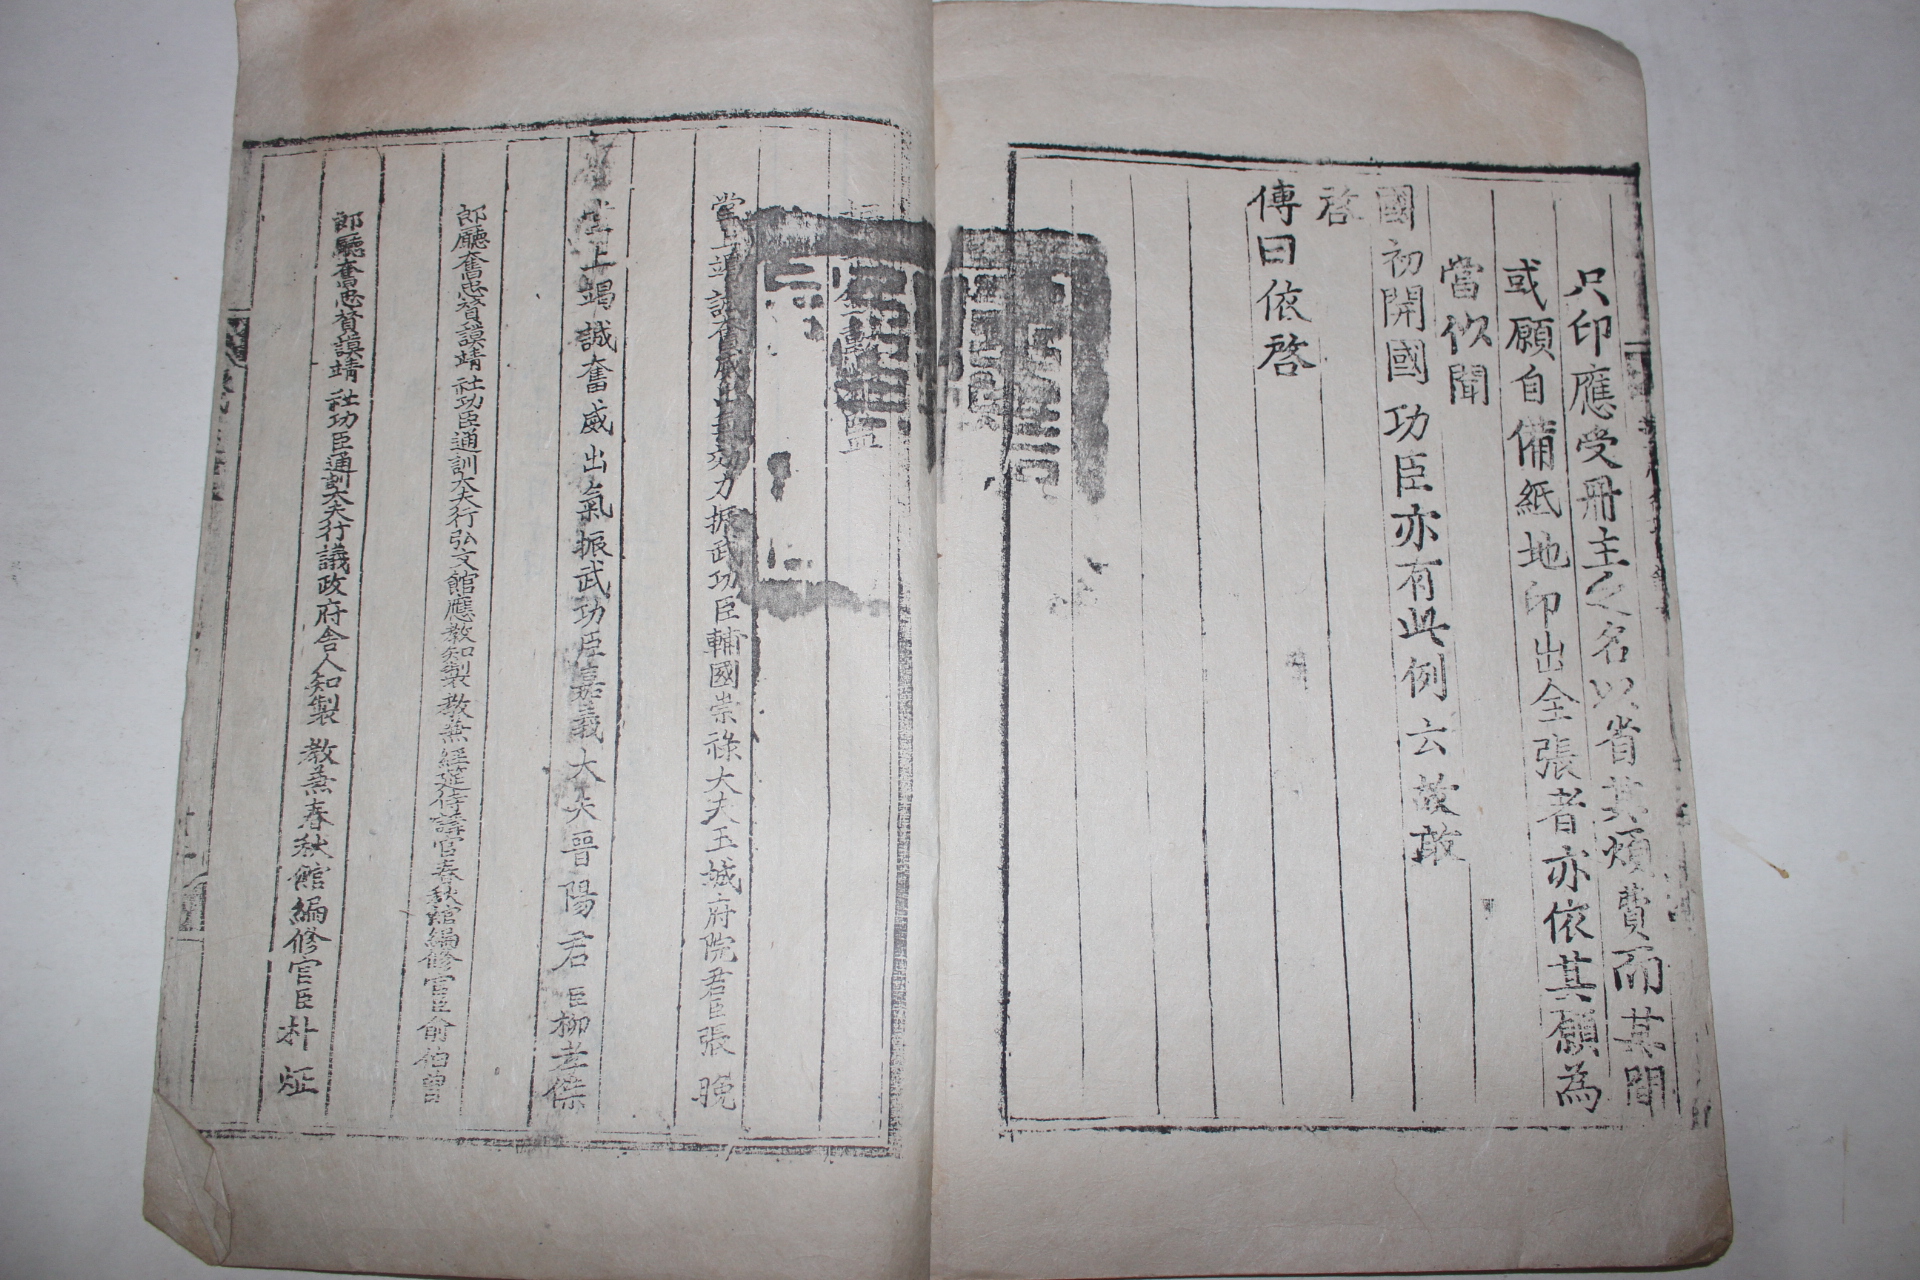 只印應受冊主之名以省其煩費而其間
或願自備紙地印出全張者亦依其願為
當伏聞
國初開國功臣亦有此例云故敢
啓
傳曰依啓
堂上竭誠奮威出氣効力振武功臣輔國崇祿大夫玉城府院君臣張晚
堂上竭誠奮威出氣振武功臣嘉義大夫晉陽君臣柳孝傑
郎廳奮忠贊謨靖社功臣通訓大夫行弘文館應教知製教兼經筵侍講官春秋館編修官臣俞伯曾
郎廳奮忠贊謨靖社功臣通訓大夫行議政府舍人知製教兼春秋館編修官臣朴炡